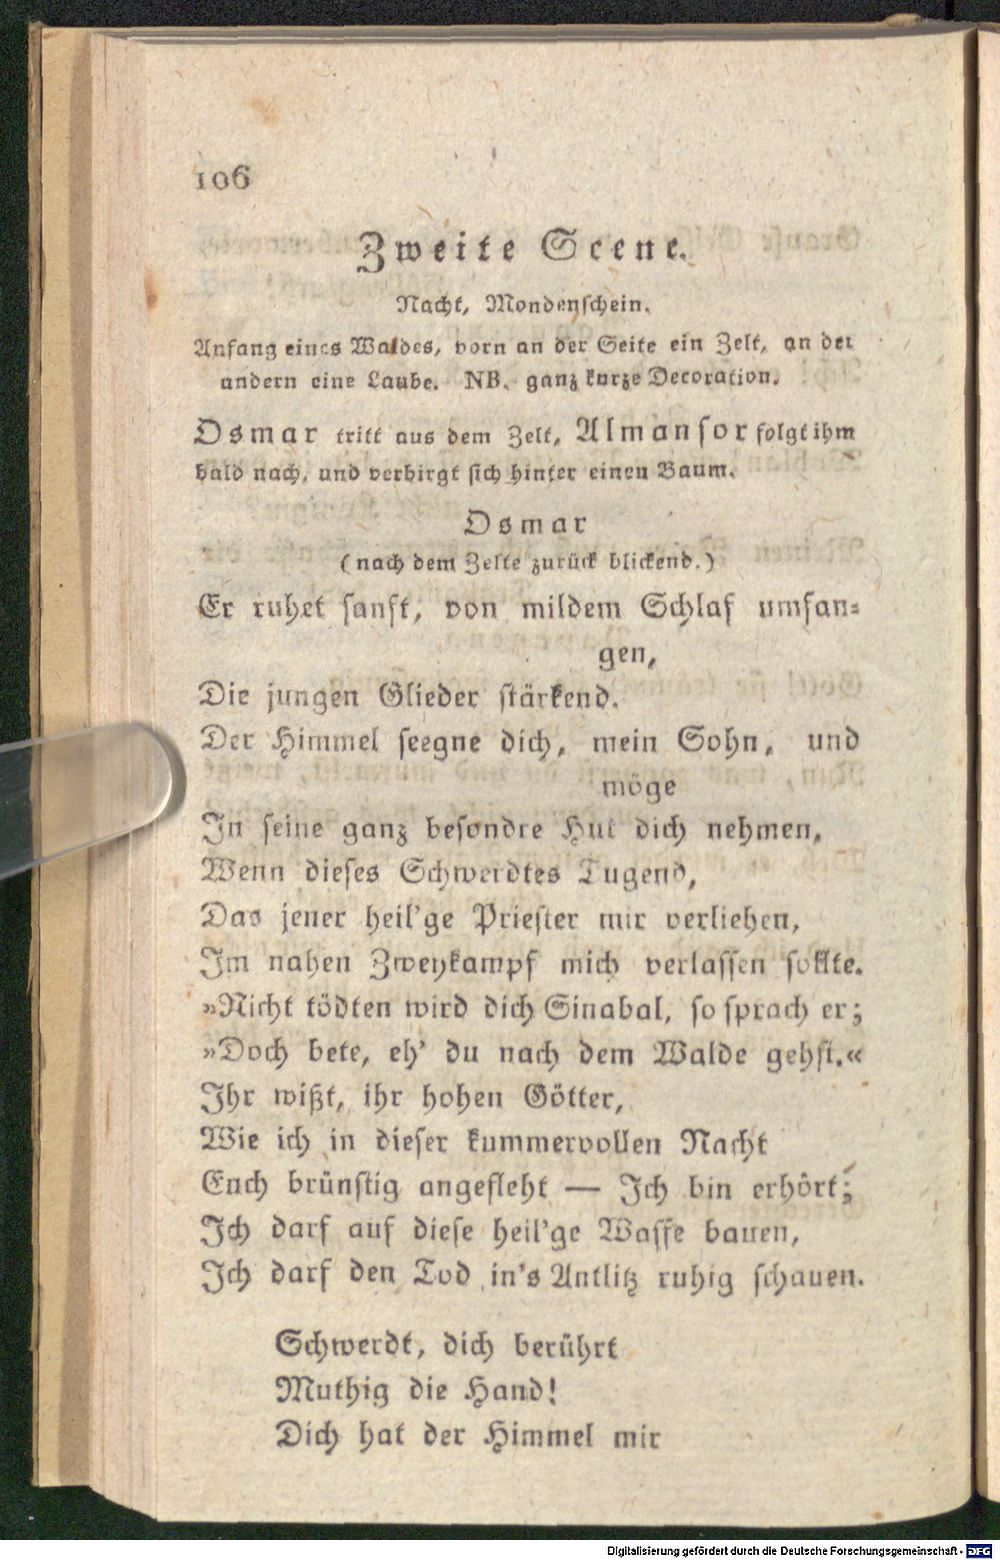 106
Zweite Scene.
Nacht, Mondenschein.
Anfang eines Waldes, vorn an der Seite ein Zelt, an der
andern eine Laube. NB. ganz kurze Decoration.
Osmar tritt aus dem Zelt, Almansor folgt ihm
bald nach, und verbirgt sich hinter einen Baum.
Osmar
(nach dem Zelte zurück blickend.)
Er ruhet sanft, von mildem Schlaf umfan-
gen,
Die jungen Glieder stärkend.
Der Himmel seegne dich, mein Sohn, und
möge
In seine ganz besondre Hut dich nehmen,
Wenn dieses Schwerdtes Tugend,
Das jener heil'ge Priester mir verliehen,
Im nahen Zweykampf mich verlassen sollte.
»Nicht tödten wird dich Sinabal, so sprach er;
»Doch bete, eh' du nach dem Walde gehst.«
Ihr wißt, ihr hohen Götter,
Wie ich in dieser kummervollen Nacht
Euch brünstig angefleht — Ich bin erhört;
Ich darf auf diese heil'ge Waffe bauen,
Ich darf den Tod in's Antlitz ruhig schauen.
Schwerdt, dich berührt
Muthig die Hand!
Dich hat der Himmel mir
Digitalisierung gefördert durch die Deutsche Forschungsgemeinschaft - DFG